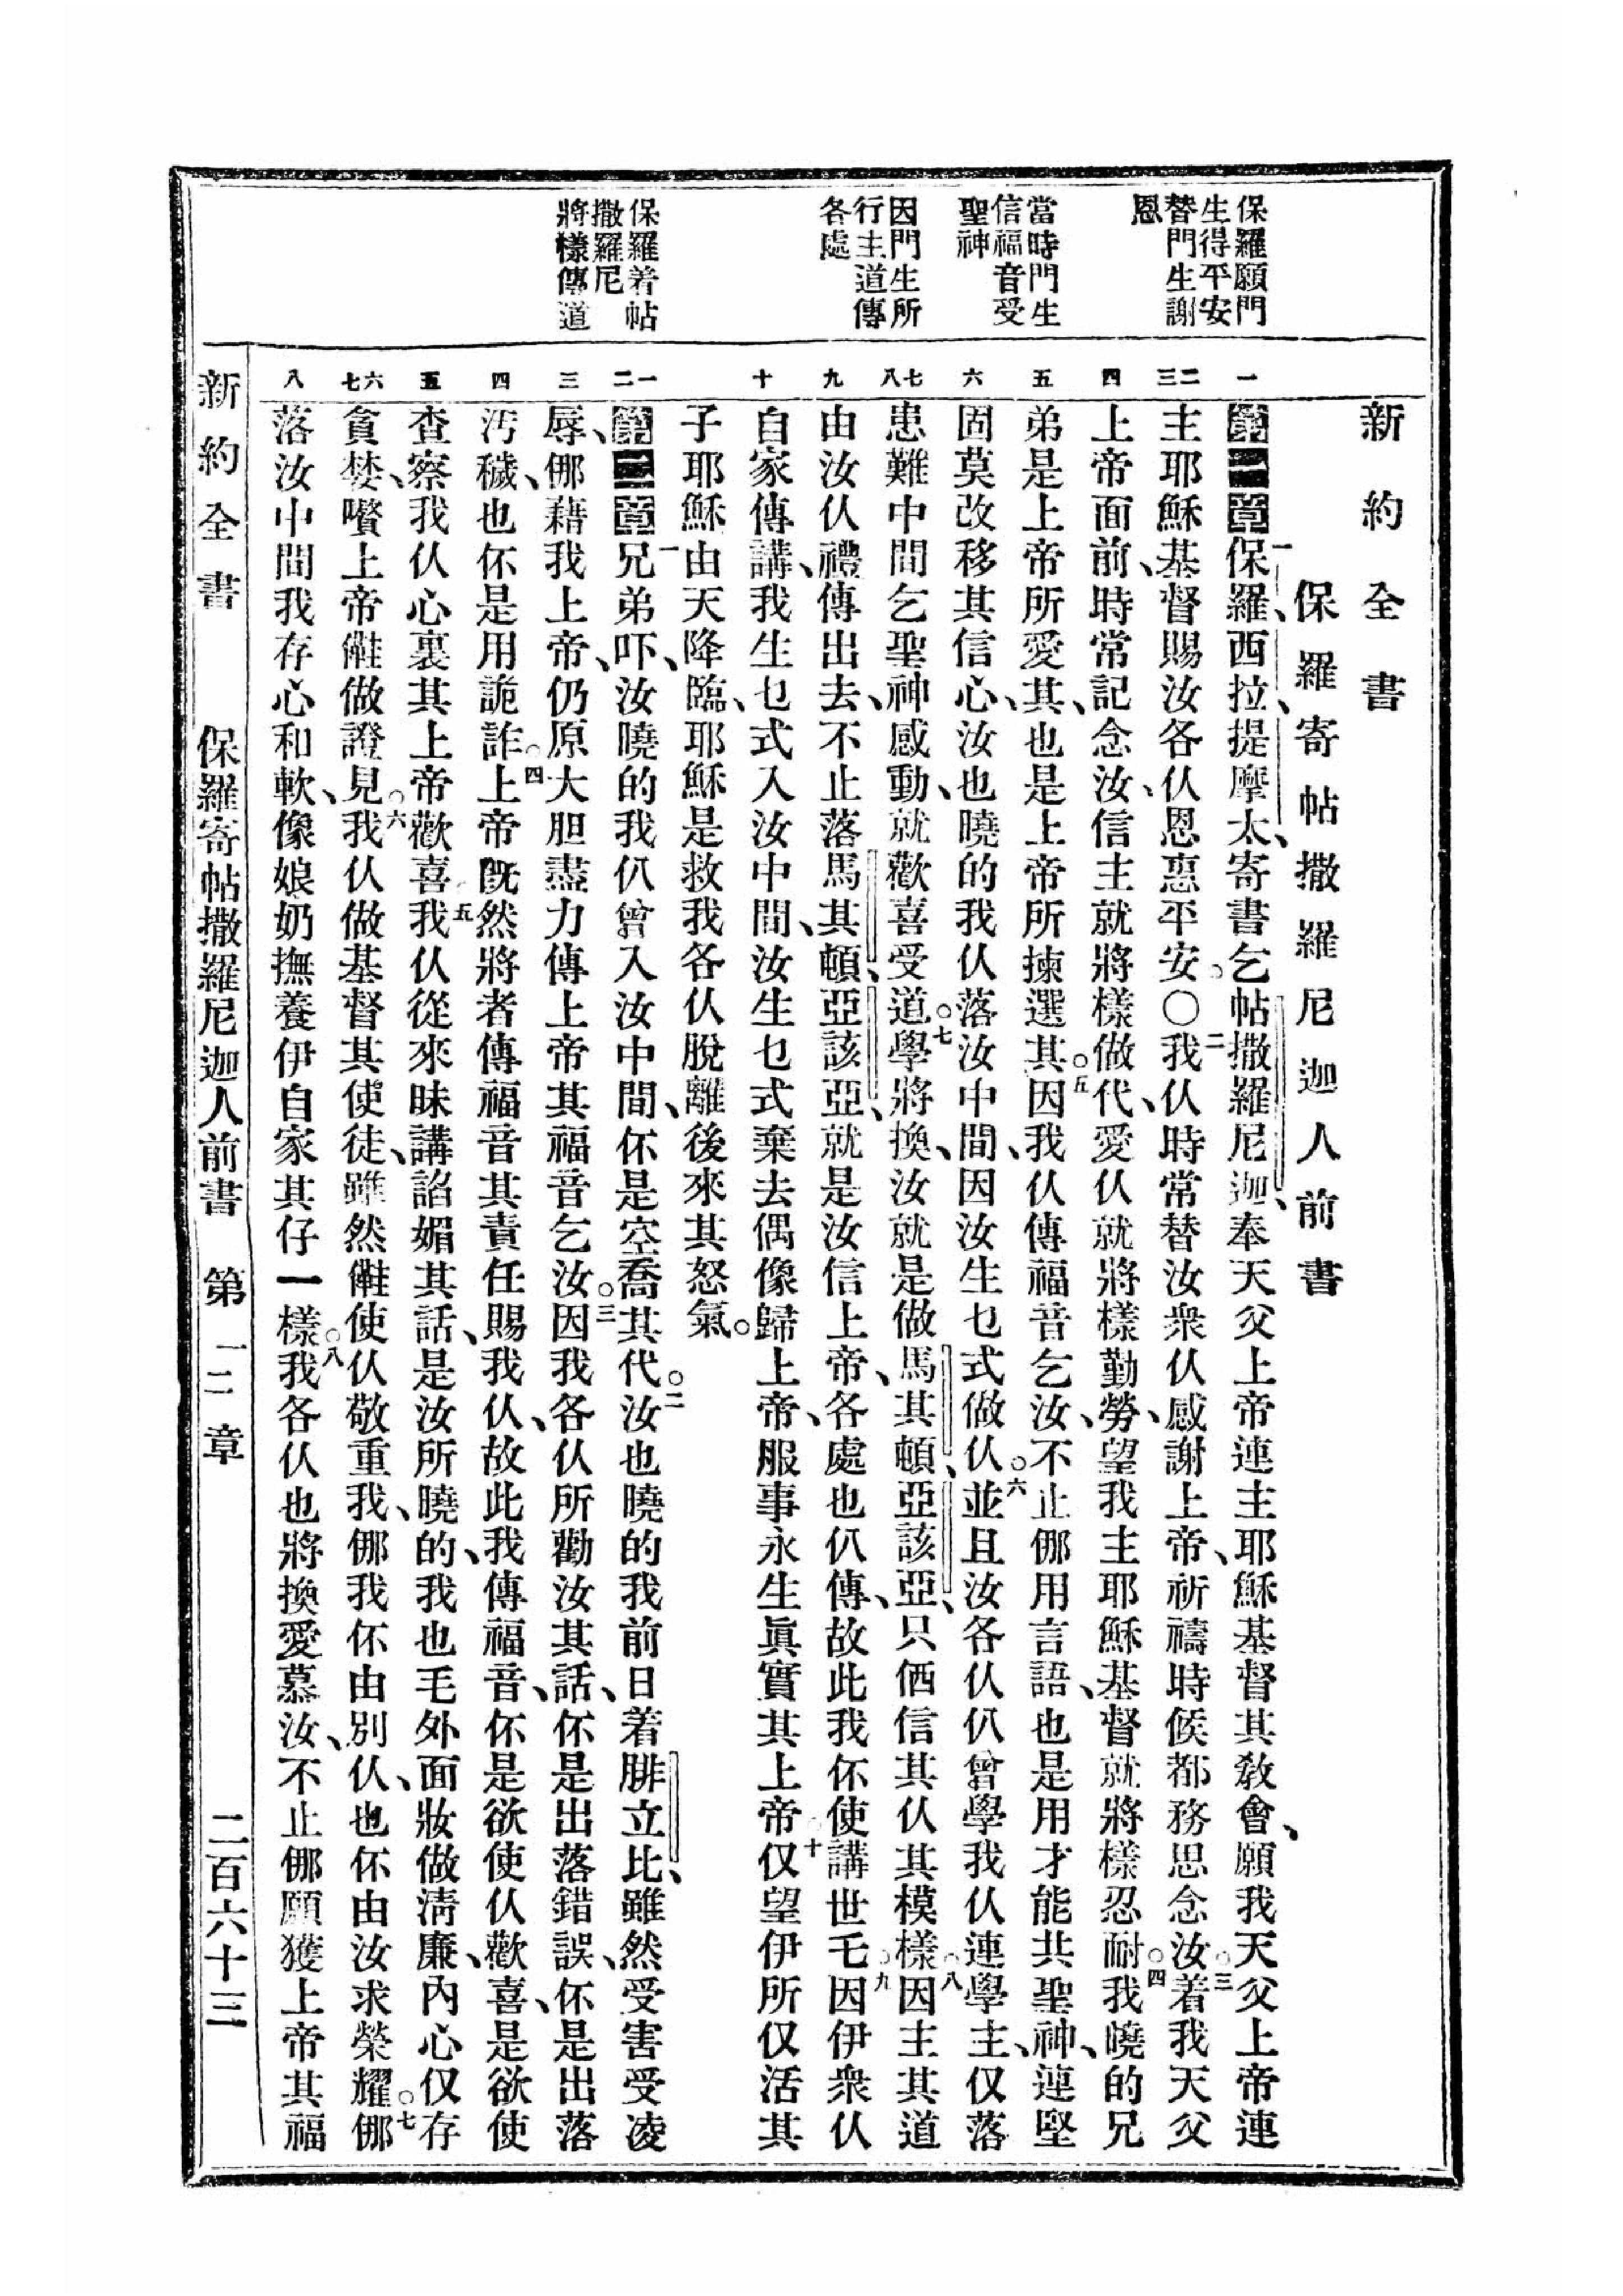 新約全書
保羅寄帖撒羅尼迦人前書
保羅願門
生得平安
替門生謝
恩
當時門生
信福音受
聖神
因門生所
行主道傳
各處
保羅着帖
撒羅尼
將樣傳道
一
第一章一保羅、西拉、提摩太、寄書乞帖撒羅尼迦、奉天父上帝連主耶穌基督其敎會、願我天父上帝連
二三
主耶穌基督賜汝各仈恩惠平安。○二我仈時常替汝衆仈感謝上帝、祈禱時候都務思念汝○三着我天父
四
上帝面前、時常記念汝、信主就將樣做代、愛仈就將樣勤勞、望我主耶穌基督就將樣忍耐○四我曉的兄
五
弟是上帝所愛其、也是上帝所揀選其○五因我仈傳福音乞汝、不止㑚用言語、也是用才能共聖神、連堅
六
固莫改移其信心、汝也曉的我仈落汝中間、因汝生乜式做仈○六並且汝各仈仈曾學我仈連學主、仅落
七八
患難中間乞聖神感動、就歡喜受道○七學將換、汝就是做馬其頓、亞該亞、只𠇗信其仈其模樣○八因主其道
九
由汝仈禮傳出去、不止落馬其頓、亞該亞、就是汝信上帝、各處也仈傳、故此我伓使講世乇○九因伊衆仈
十
自家傳講、我生乜式入汝中間、汝生乜式棄去偶像歸上帝、服事永生眞實其上帝○十仅望伊所仅活其
子耶穌由天降臨、耶穌是救我各仈脫離後來其怒氣。
一二
第二章一兄弟吓、汝曉的我仈曾入汝中間、伓是空喬其代○二汝也曉的我前日着腓立比、雖然受害受凌
三
辱、㑚藉我上帝、仍原大胆盡力傳上帝其福音乞汝○三因我各仈所勸汝其話、伓是出落錯誤、伓是出落
四
汚穢、也伓是用詭詐○四上帝旣然將者傳福音其責任賜我仈、故此我傳福音、伓是欲使仈歡喜、是欲使
五
查察我仈心裏其上帝歡喜○五我仈從來昧講諂媚其話、是汝所曉的、我也毛外面妝做淸廉、內心仅存
六七
貪婪、嚽上帝𠆧做證見○六我仈做基督其使徒、雖然𠆧使仈敬重我、㑚我伓由別仈、也伓由汝求榮耀○七㑚
八
落汝中間我存心和軟、像娘奶撫養伊自家其仔一樣○八我各仈也將換愛慕汝、不止㑚願獲上帝其福
新約全書　保羅寄帖撒羅尼迦人前書　第一二章　二百六十三